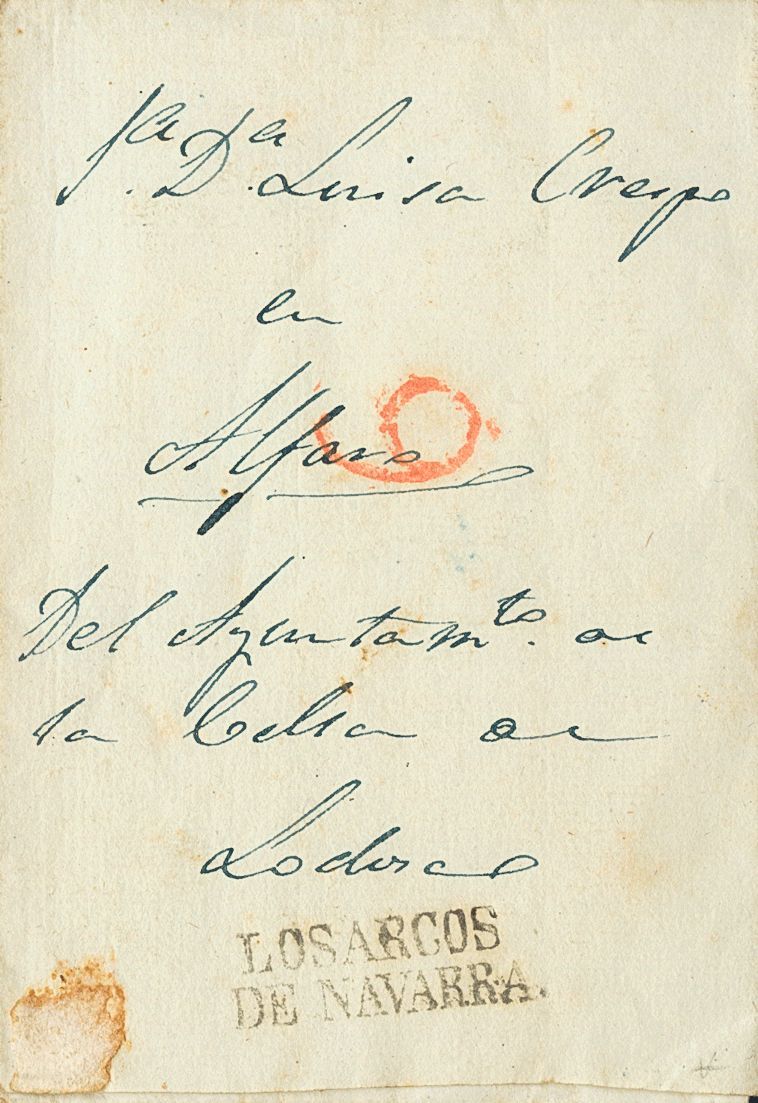 Sra Da Luisa Crespo
en
Alfaro
Del Ayuntamto. de
la Celsa de
Lodosa
LOS ARCOS
DE NAVARRA.